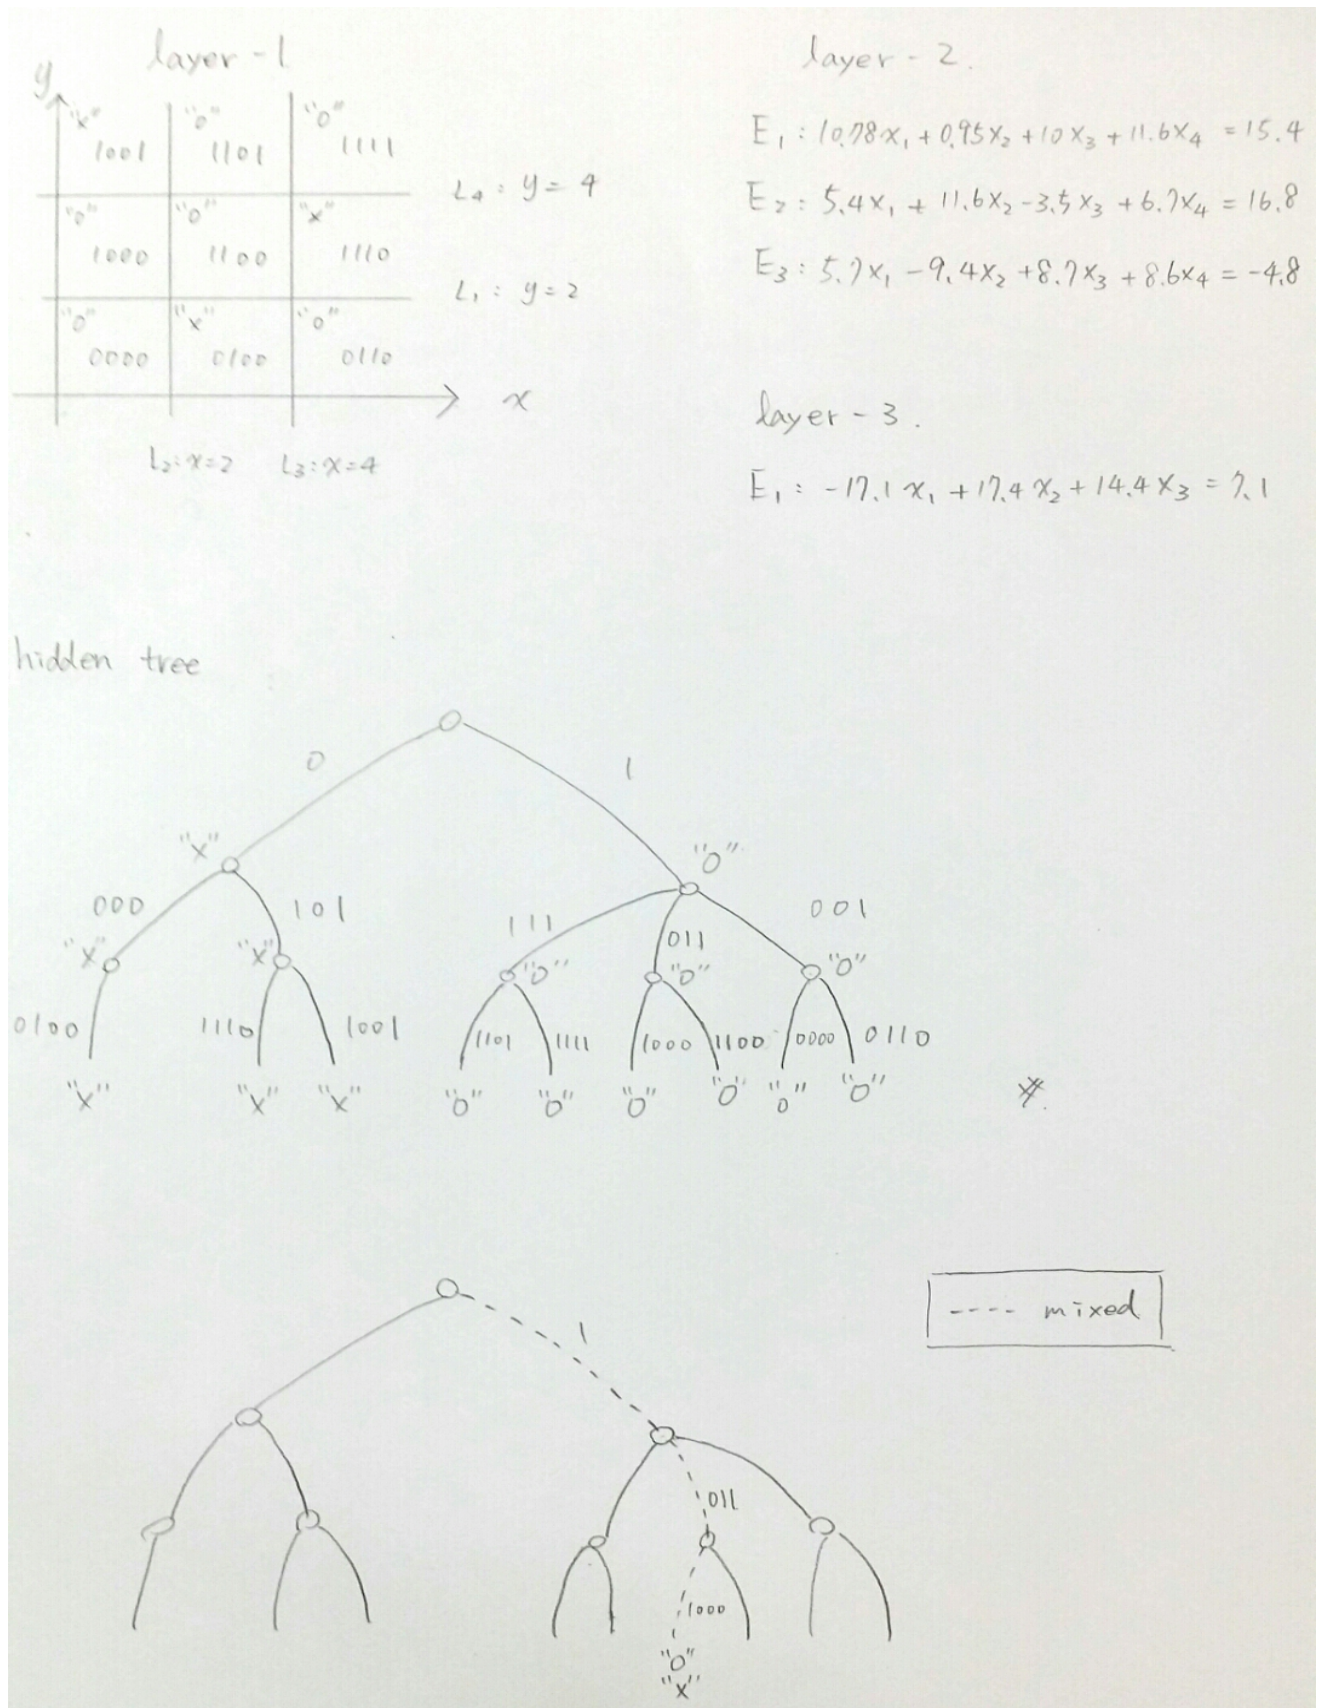 layer - 1
y
"x" "0" "0"
1001 1101 1111
L4 : y = 4
"0" "0" "x"
1000 1100 1110
L1 : y = 2
"0" "x" "0"
0000 0100 0110
x
L2 : x=2 L3 : x=4
layer - 2.
E1 : 10.78x1 + 0.95x2 + 10x3 + 11.6x4 = 15.4
E2 : 5.4x1 + 11.6x2 - 3.5x3 + 6.7x4 = 16.8
E3 : 5.7x1 - 9.4x2 + 8.7x3 + 8.6x4 = -4.8
layer - 3.
E1 : -17.1x1 + 17.4x2 + 14.4x3 = 7.1
hidden tree
0 1
"x" "0"
000 101 111 011 001
"x" "x" "0" "0" "0"
0100 1110 1001 1101 1111 1000 1100 0000 0110
"x" "x" "x" "0" "0" "0" "0" "0" "0"
---- mixed
1
011
1000
"0"
"x"